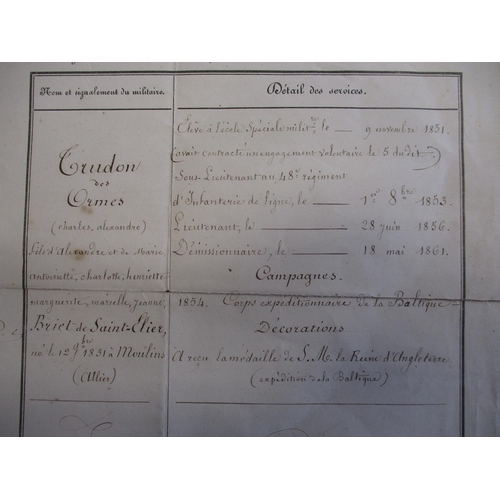 Nom et signalement du militaire.
Détail des services.
Trudon
des
Ormes
(charles, alexandre)
fils d'Alexandre et de Marie
antoinette, charlotte, henriette
marguerite, marielle, jeanne,
Briet de Saint-Elier,
né le 12 9bre 1831 à Moulins
(Allier)
Élève à l'école Spéciale milit.re le — 9 novembre 1851.
(avait contracté un engagement volontaire le 5 du dit)
Sous-Lieutenant au 48e régiment
d'Infanterie de ligne, le — 1er 8bre 1853
Lieutenant, le — 28 juin 1856.
Démissionnaire, le — 18 mai 1861.
Campagnes.
1854. Corps expéditionnaire de la Baltique
Décorations
A reçu la médaille de S. M. la Reine d'Angleterre
(expédition de la Baltique)